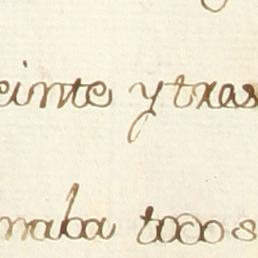 einte y tras
naba todos